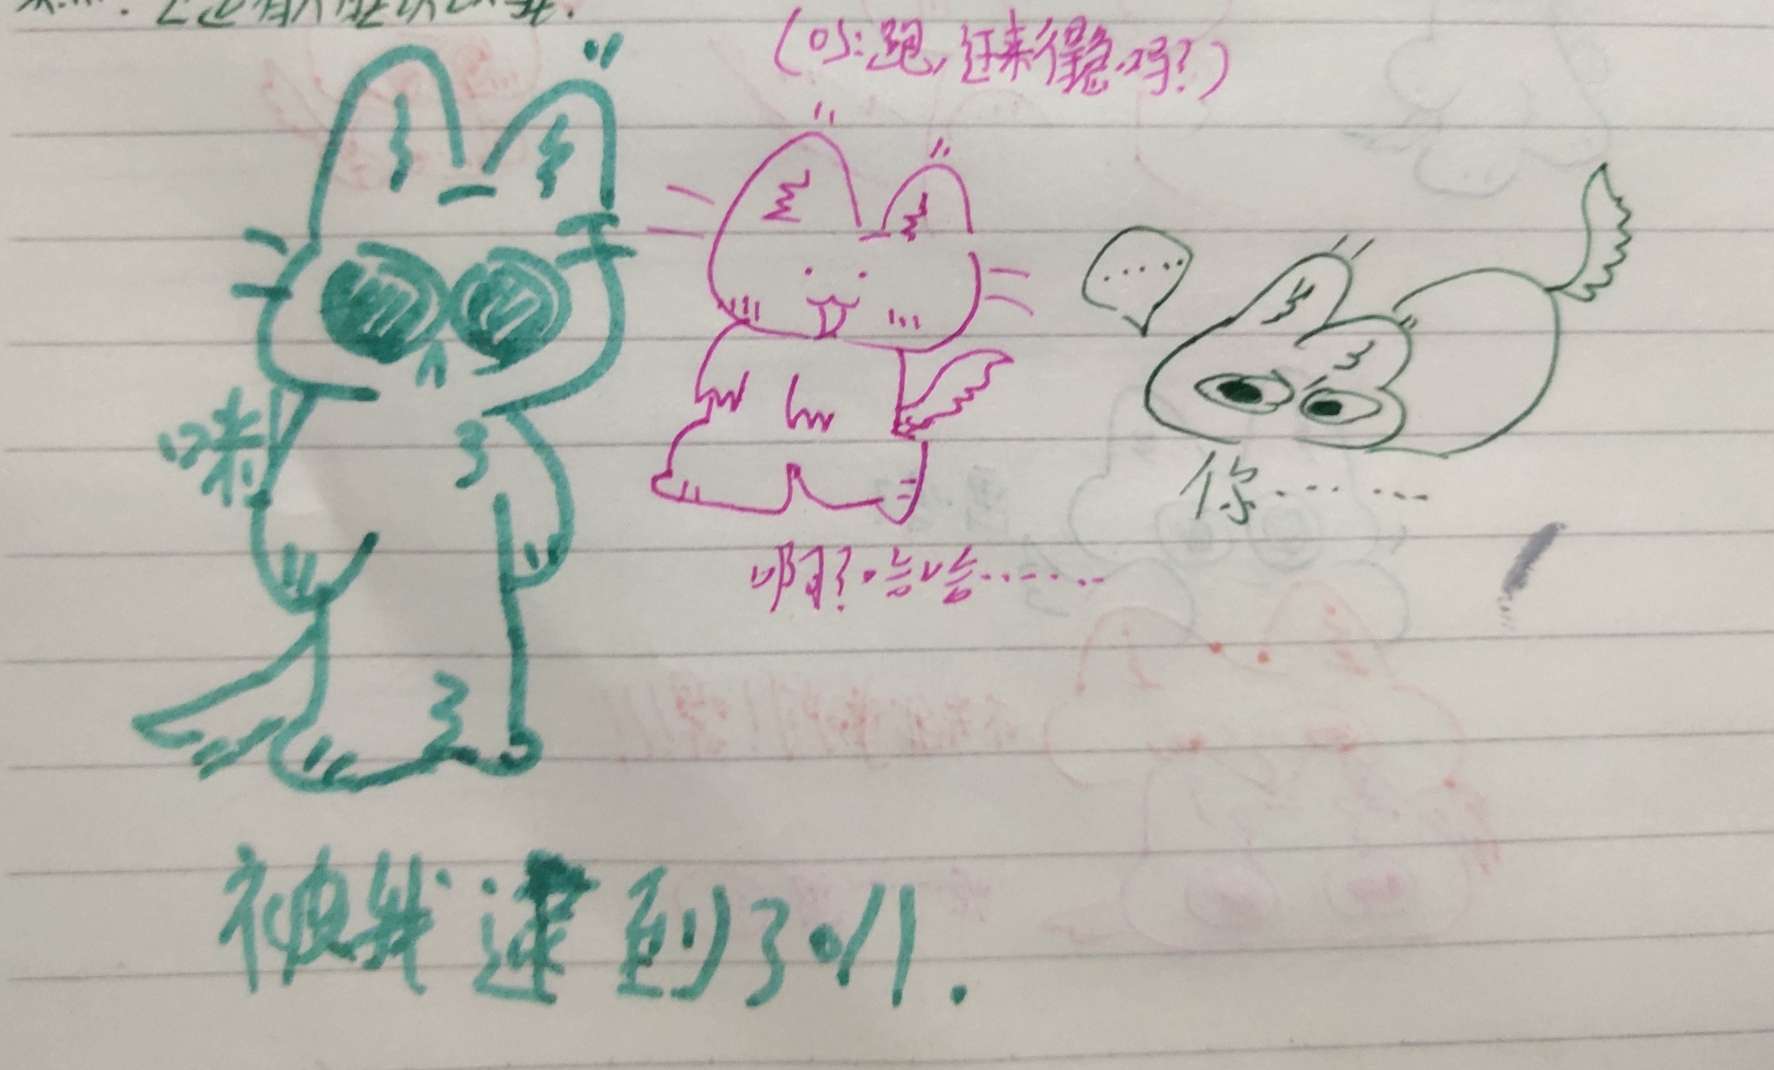 (OS:跑,还来得急吗?)
.....
咪!
你……
啊?哈哈……
被我逮到了叭.